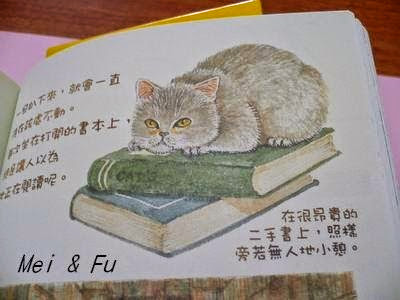 一旦趴下來，就會一直
待在該處不動。
坐在打開的書本上，
讓人以為
正在閱讀呢。
CATS
在很昂貴的
二手書上，照樣
旁若無人地小憩。
Mei & Fu